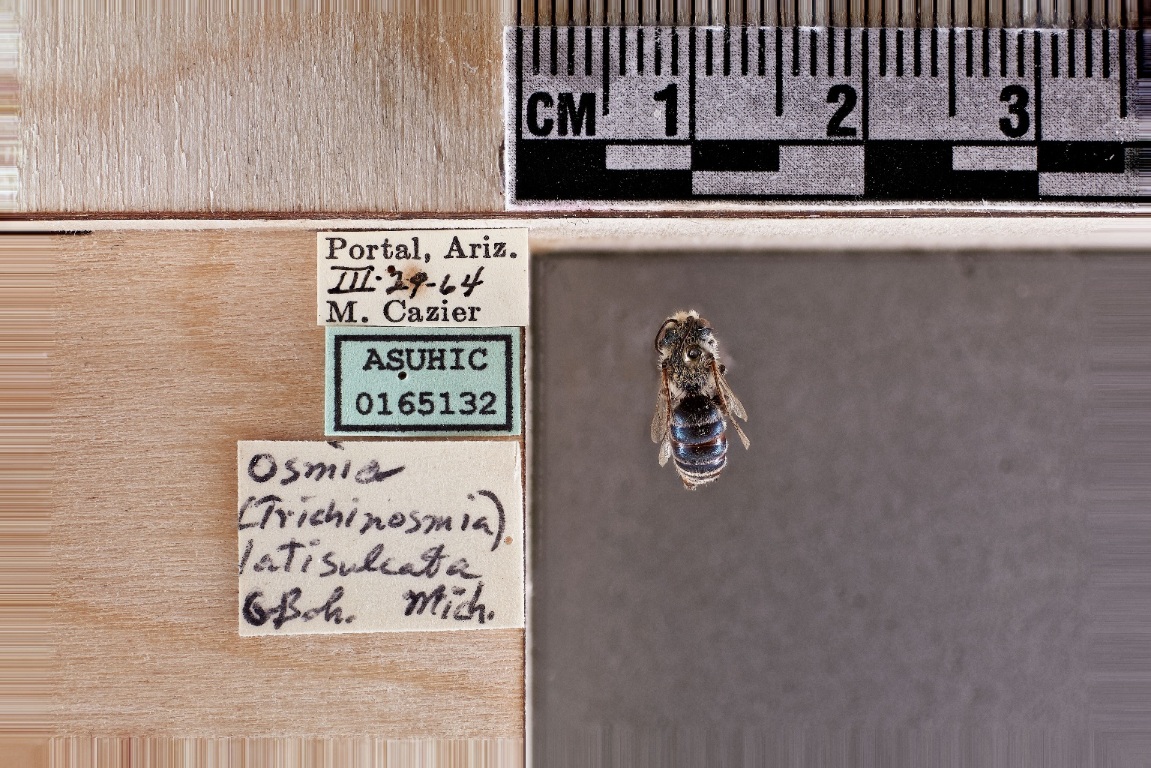 CM 1 2 3
Portal, Ariz.
III-29-64
M. Cazier
ASUHIC
0165132
Osmia
(Trichinosmia)
latisulcata
GBoh. Mich.